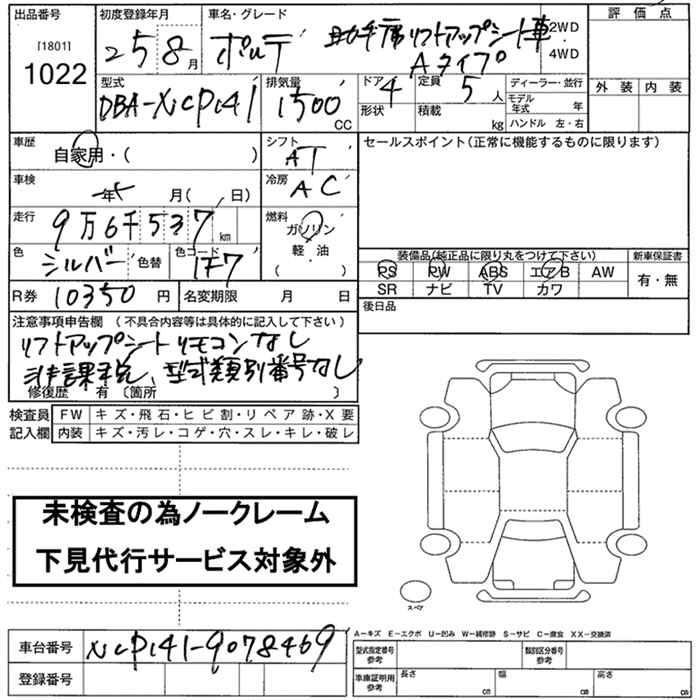 出品番号 初度登録年月 車名・グレード 評価点
[1801]
1022
25 8月 ポルテ 助手席リフトアップシート車 2WD
Aタイプ ・
4WD
型式 排気量 ドア 定員 ディーラー・並行 外装 内装
DBA-NCP141 1500 CC 4 5人 モデル年式 年
形状 積載 kg ハンドル 左・右
車歴 シフト セールスポイント(正常に機能するものに限ります)
自家用・( ) AT
車検 冷房
年 月( 日) AC
走行 燃料
9万6千537km ガソリン
色 色コード 軽・油 装備品(純正品に限り丸をつけて下さい) 新車保証書
シルバー 色替 1F7 ( ) PS PW ABS エアB AW 有・無
SR ナビ TV カワ
R券 10350円 名変期限 月 日 後日品
注意事項申告欄 (不具合内容等は具体的に記入して下さい)
リフトアップシートリモコンなし
非課税、型式類別番号なし
修復歴 有 〔箇所 〕
検査員 FW キズ・飛石・ヒビ割・リペア跡・X要
記入欄 内装 キズ・汚レ・コゲ・穴・スレ・キレ・破レ
未検査の為ノークレーム
下見代行サービス対象外
スペア
A-キズ E-エクボ U-凹み W-補修跡 S-サビ C-腐食 XX-交換済
車台番号 NCP141-9078469 型式指定番号 参考 類別区分番号 参考
登録番号 車庫証明用 参考 長さ cm 幅 cm 高さ cm